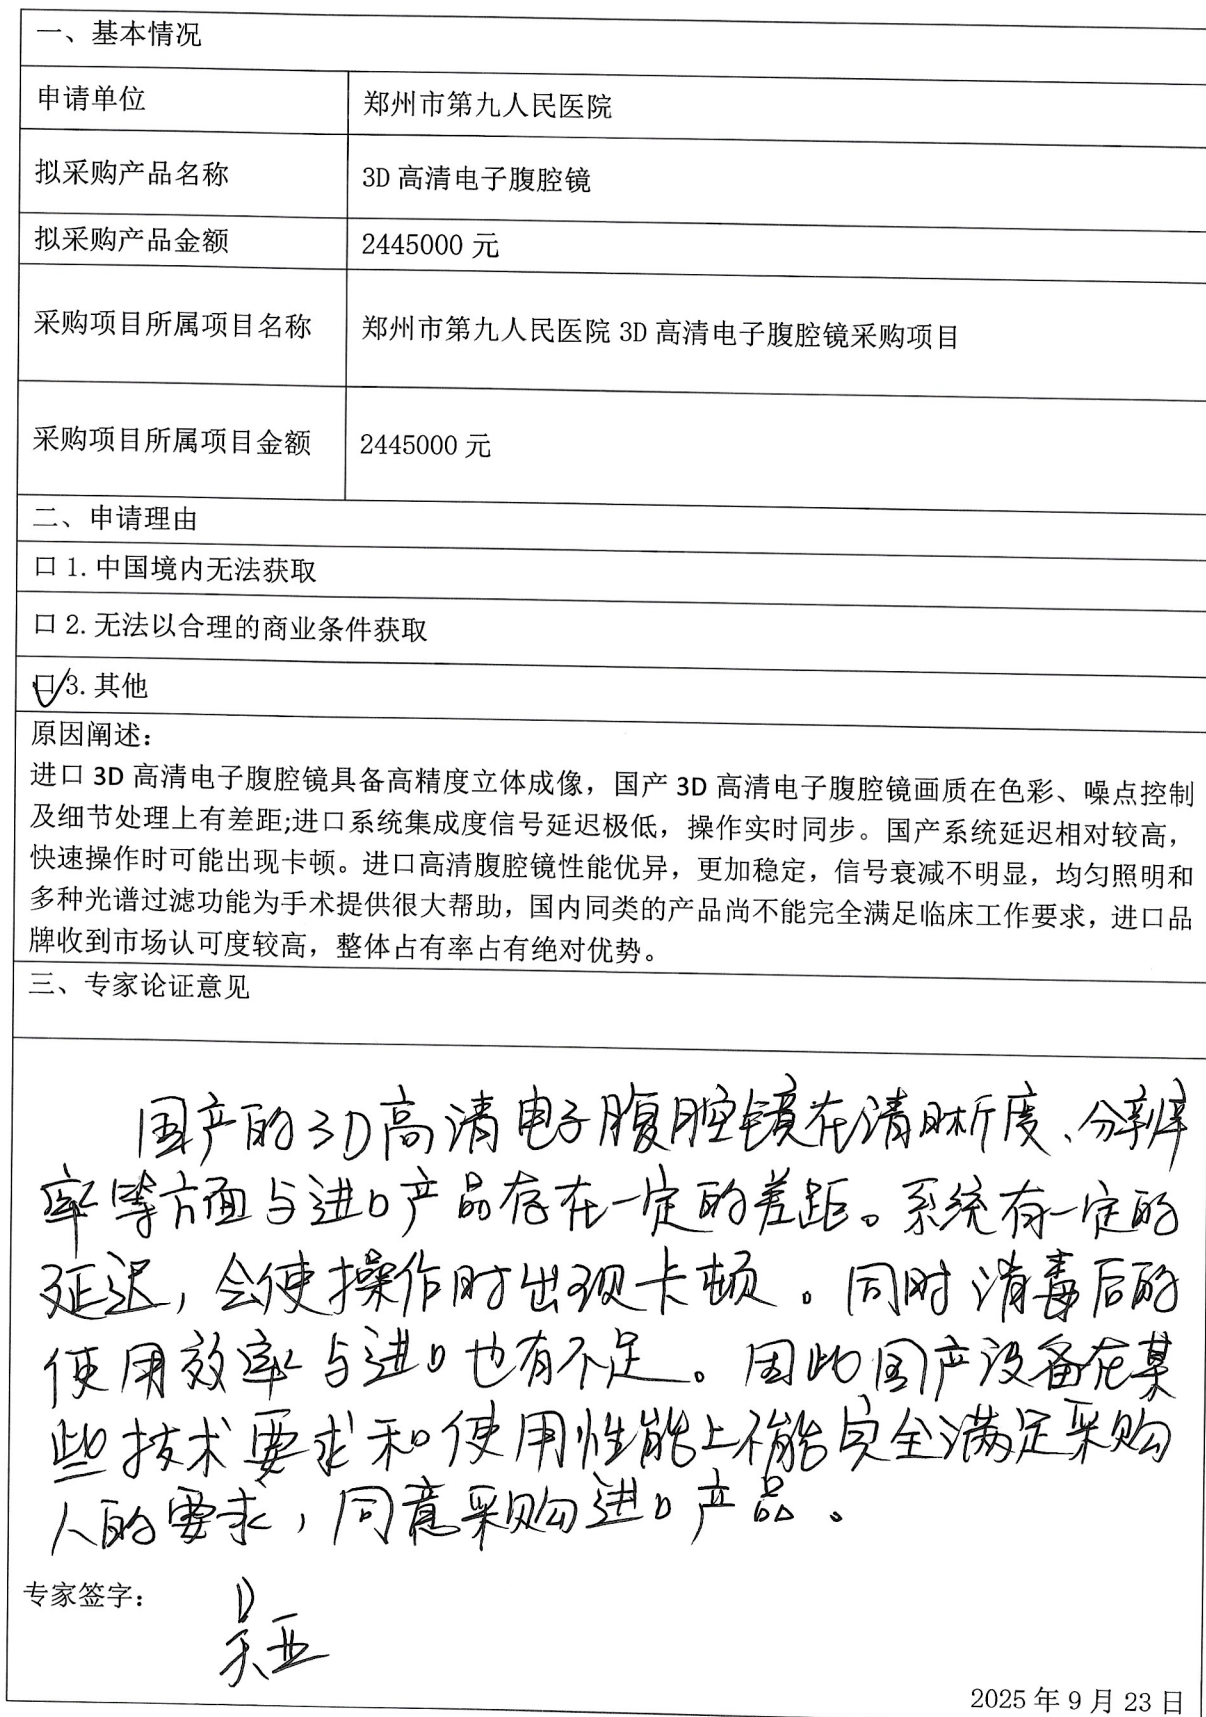 一、基本情况
申请单位 郑州市第九人民医院
拟采购产品名称 3D 高清电子腹腔镜
拟采购产品金额 2445000 元
采购项目所属项目名称 郑州市第九人民医院 3D 高清电子腹腔镜采购项目
采购项目所属项目金额 2445000 元
二、申请理由
口 1. 中国境内无法获取
口 2. 无法以合理的商业条件获取
口 3. 其他
原因阐述：
进口 3D 高清电子腹腔镜具备高精度立体成像，国产 3D 高清电子腹腔镜画质在色彩、噪点控制
及细节处理上有差距;进口系统集成度信号延迟极低，操作实时同步。国产系统延迟相对较高，
快速操作时可能出现卡顿。进口高清腹腔镜性能优异，更加稳定，信号衰减不明显，均匀照明和
多种光谱过滤功能为手术提供很大帮助，国内同类的产品尚不能完全满足临床工作要求，进口品
牌收到市场认可度较高，整体占有率占有绝对优势。
三、专家论证意见
国产的3D高清电子腹腔镜在清晰度、分辨
率等方面与进口产品存在一定的差距。系统有一定的
延迟，会使操作时出现卡顿。同时消毒后的
使用效率与进口也有不足。因此国产设备在某
些技术要求和使用性能上不能完全满足采购
人的要求，同意采购进口产品。
专家签字：
吴亚
2025 年 9 月 23 日